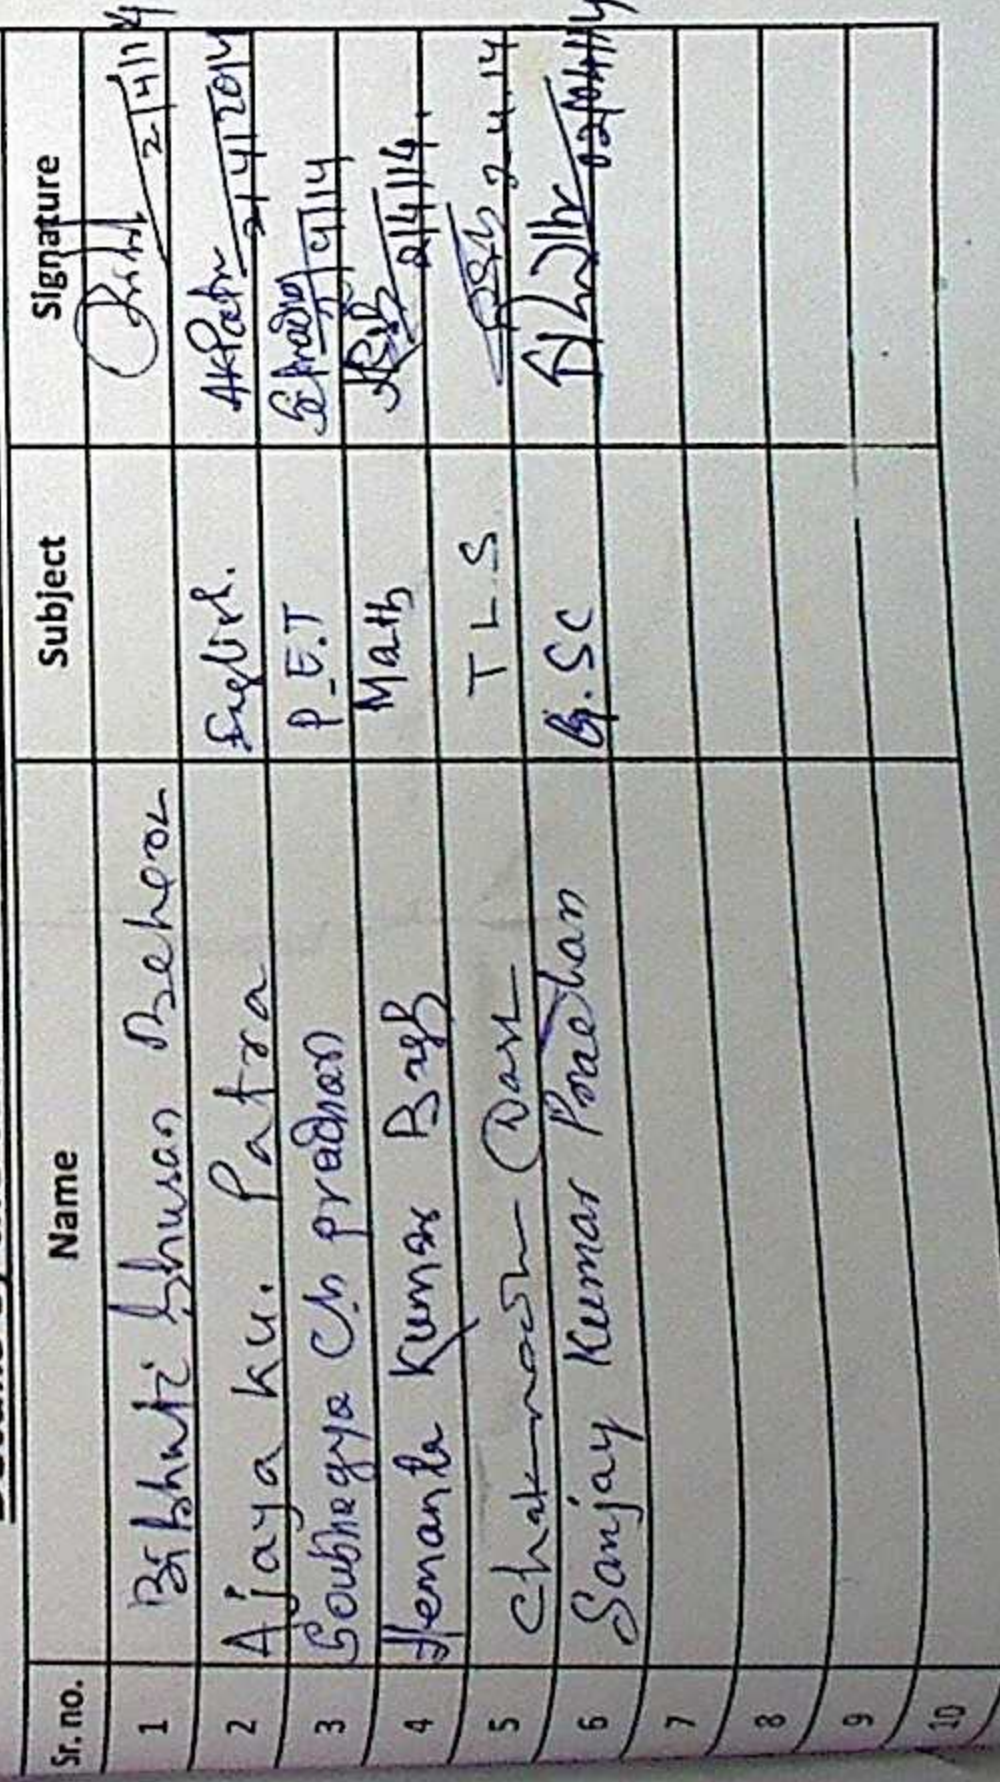 Sr. no. Name Subject Signature
1 Bibhuti bhusan Behera 2/4/14
2 Ajaya ku. Patra English. AKPatra 2/4/2014
3 Soubhagya Ch pradhan P.E.T 2/4/14
4 Hemanta Kumar Math 2/4/14.
5 Dash T L S 2-4.14
6 Sanjay Kumar Pradhan Bg. SC 02/04/14
7
8
9
10